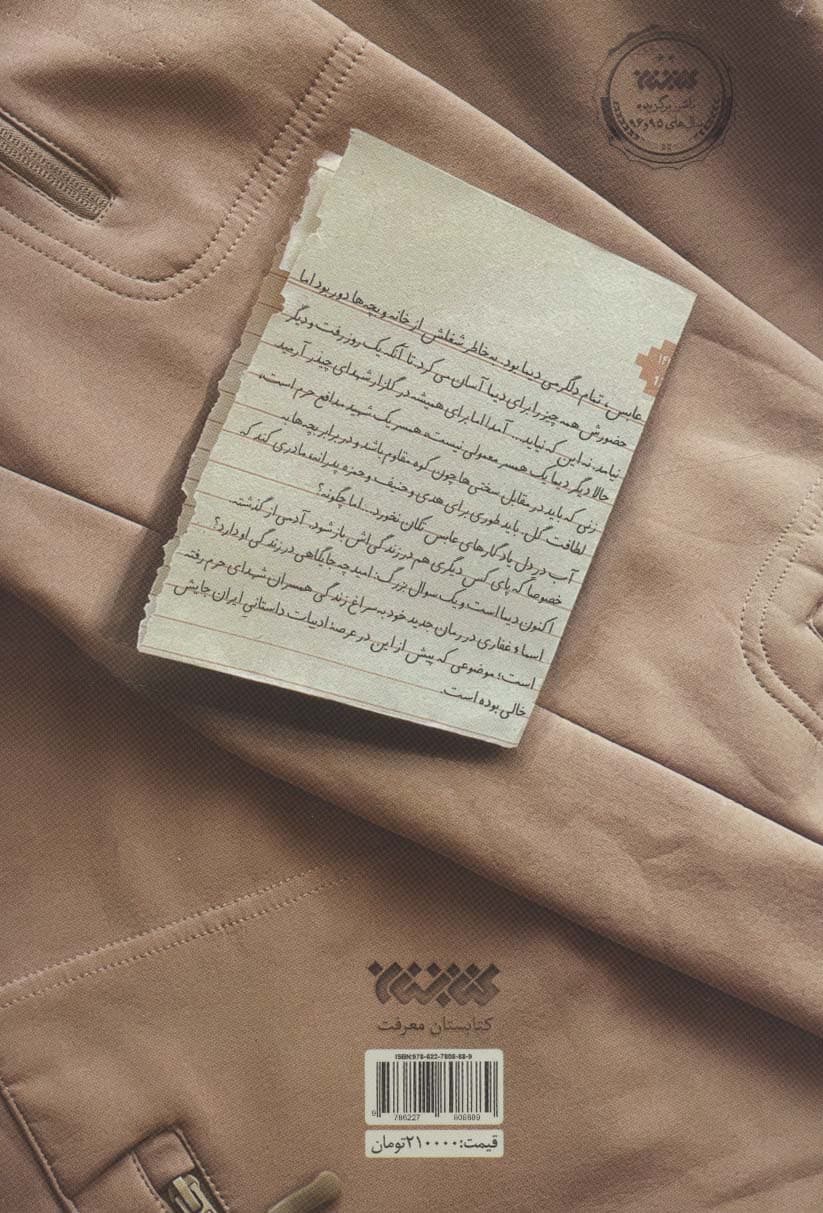 کتابستان
ناشر برگزیده
سال‌های ۹۵ و ۹۶
عباس، تمام دلگرمی دیبا بود. به‌خاطر شغلش از خانه و بچه‌ها دور بود اما
حضورش همه چیز را برای دیبا آسان می‌کرد؛ تا آنکه یک روز رفت و دیگر
نیامد. نه این که نیاید... آمد! اما برای همیشه در گلزار شهدای چیذر آرمید.
حالا دیگر دیبا یک همسر معمولی نیست، همسر یک شهید مدافع حرم است.
زنی که باید در مقابل سختی‌ها چون کوه مقاوم باشد و در برابر بچه‌ها، به
لطافت گل. باید طوری برای هدی و حنیف و حمزه پدرانه، مادری کند که
آب در دل یادگارهای عباس تکان نخورد... اما چگونه؟
خصوصاً که پای کس دیگری هم در زندگی‌اش باز شود. آدمی از گذشته.
اکنون دیبا است و یک سوال بزرگ: امید چه جایگاهی در زندگی او دارد؟
اسماء غفاری در رمان جدید خود به سراغ زندگی همسران شهدای حرم رفته
است؛ موضوعی که پیش از این در عرصهٔ ادبیات داستانی ایران جایش
خالی بوده است.
کتابستان
کتابستان معرفت
ISBN:978-622-7808-88-9
9 786227 808889
قیمت: ۲۱۰۰۰۰ تومان